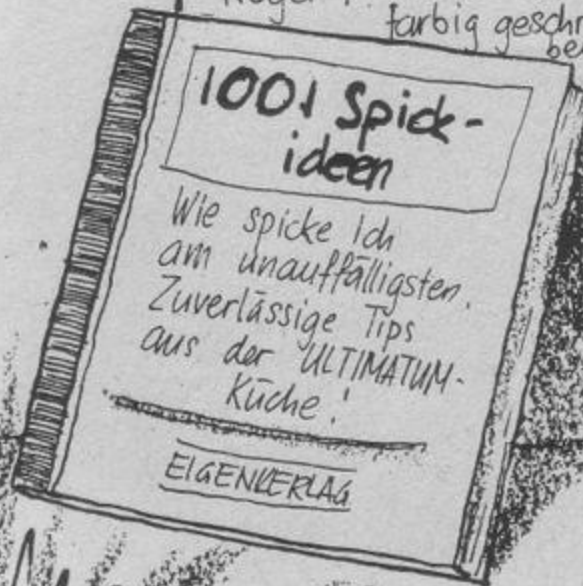 farbig geschr
be
1001 Spick-
ideen
Wie spicke ich
am unauffälligsten.
Zuverlässige Tips
aus der ULTIMATUM-
Küche!
EIGENVERLAG